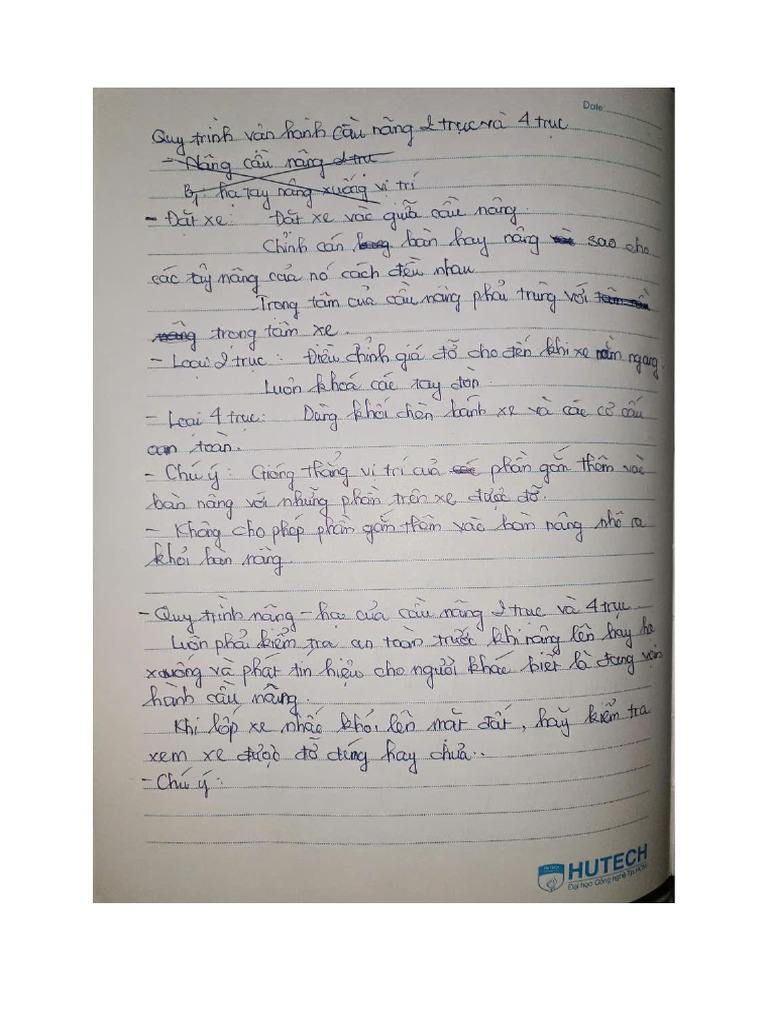 Date:
Quy trình vận hành cầu nâng 2 trục và 4 trục
- Nâng cầu nâng 2 trục
B1 hạ tay nâng xuống vị trí
- Đặt xe: Đặt xe vào giữa cầu nâng.
Chỉnh cán bàn hay nâng sao cho
các tay nâng của nó cách đều nhau
Trọng tâm của cầu nâng phải trùng với
trọng tâm xe.
- Loại 2 trục: Điều chỉnh giá đỡ cho đến khi xe nằm ngang.
Luôn khoá các tay đòn.
- Loại 4 trục: Dùng khối chèn bánh xe và các cơ cấu
an toàn.
- Chú ý: Gióng thẳng vị trí của phần gắn thêm vào
bàn nâng với những phần trên xe được đỡ.
- Không cho phép phần gắn thêm vào bàn nâng nhô ra
khỏi bàn nâng.
- Quy trình nâng - hạ của cầu nâng 2 trục và 4 trục.
Luôn phải kiểm tra an toàn trước khi nâng lên hay hạ
xuống và phát tín hiệu cho người khác biết là đang vận
hành cầu nâng.
Khi lốp xe nhấc khỏi lên mặt đất, hãy kiểm tra
xem xe được đỡ đúng hay chưa..
- Chú ý:
HUTECH
Đại học Công nghệ Tp.HCM